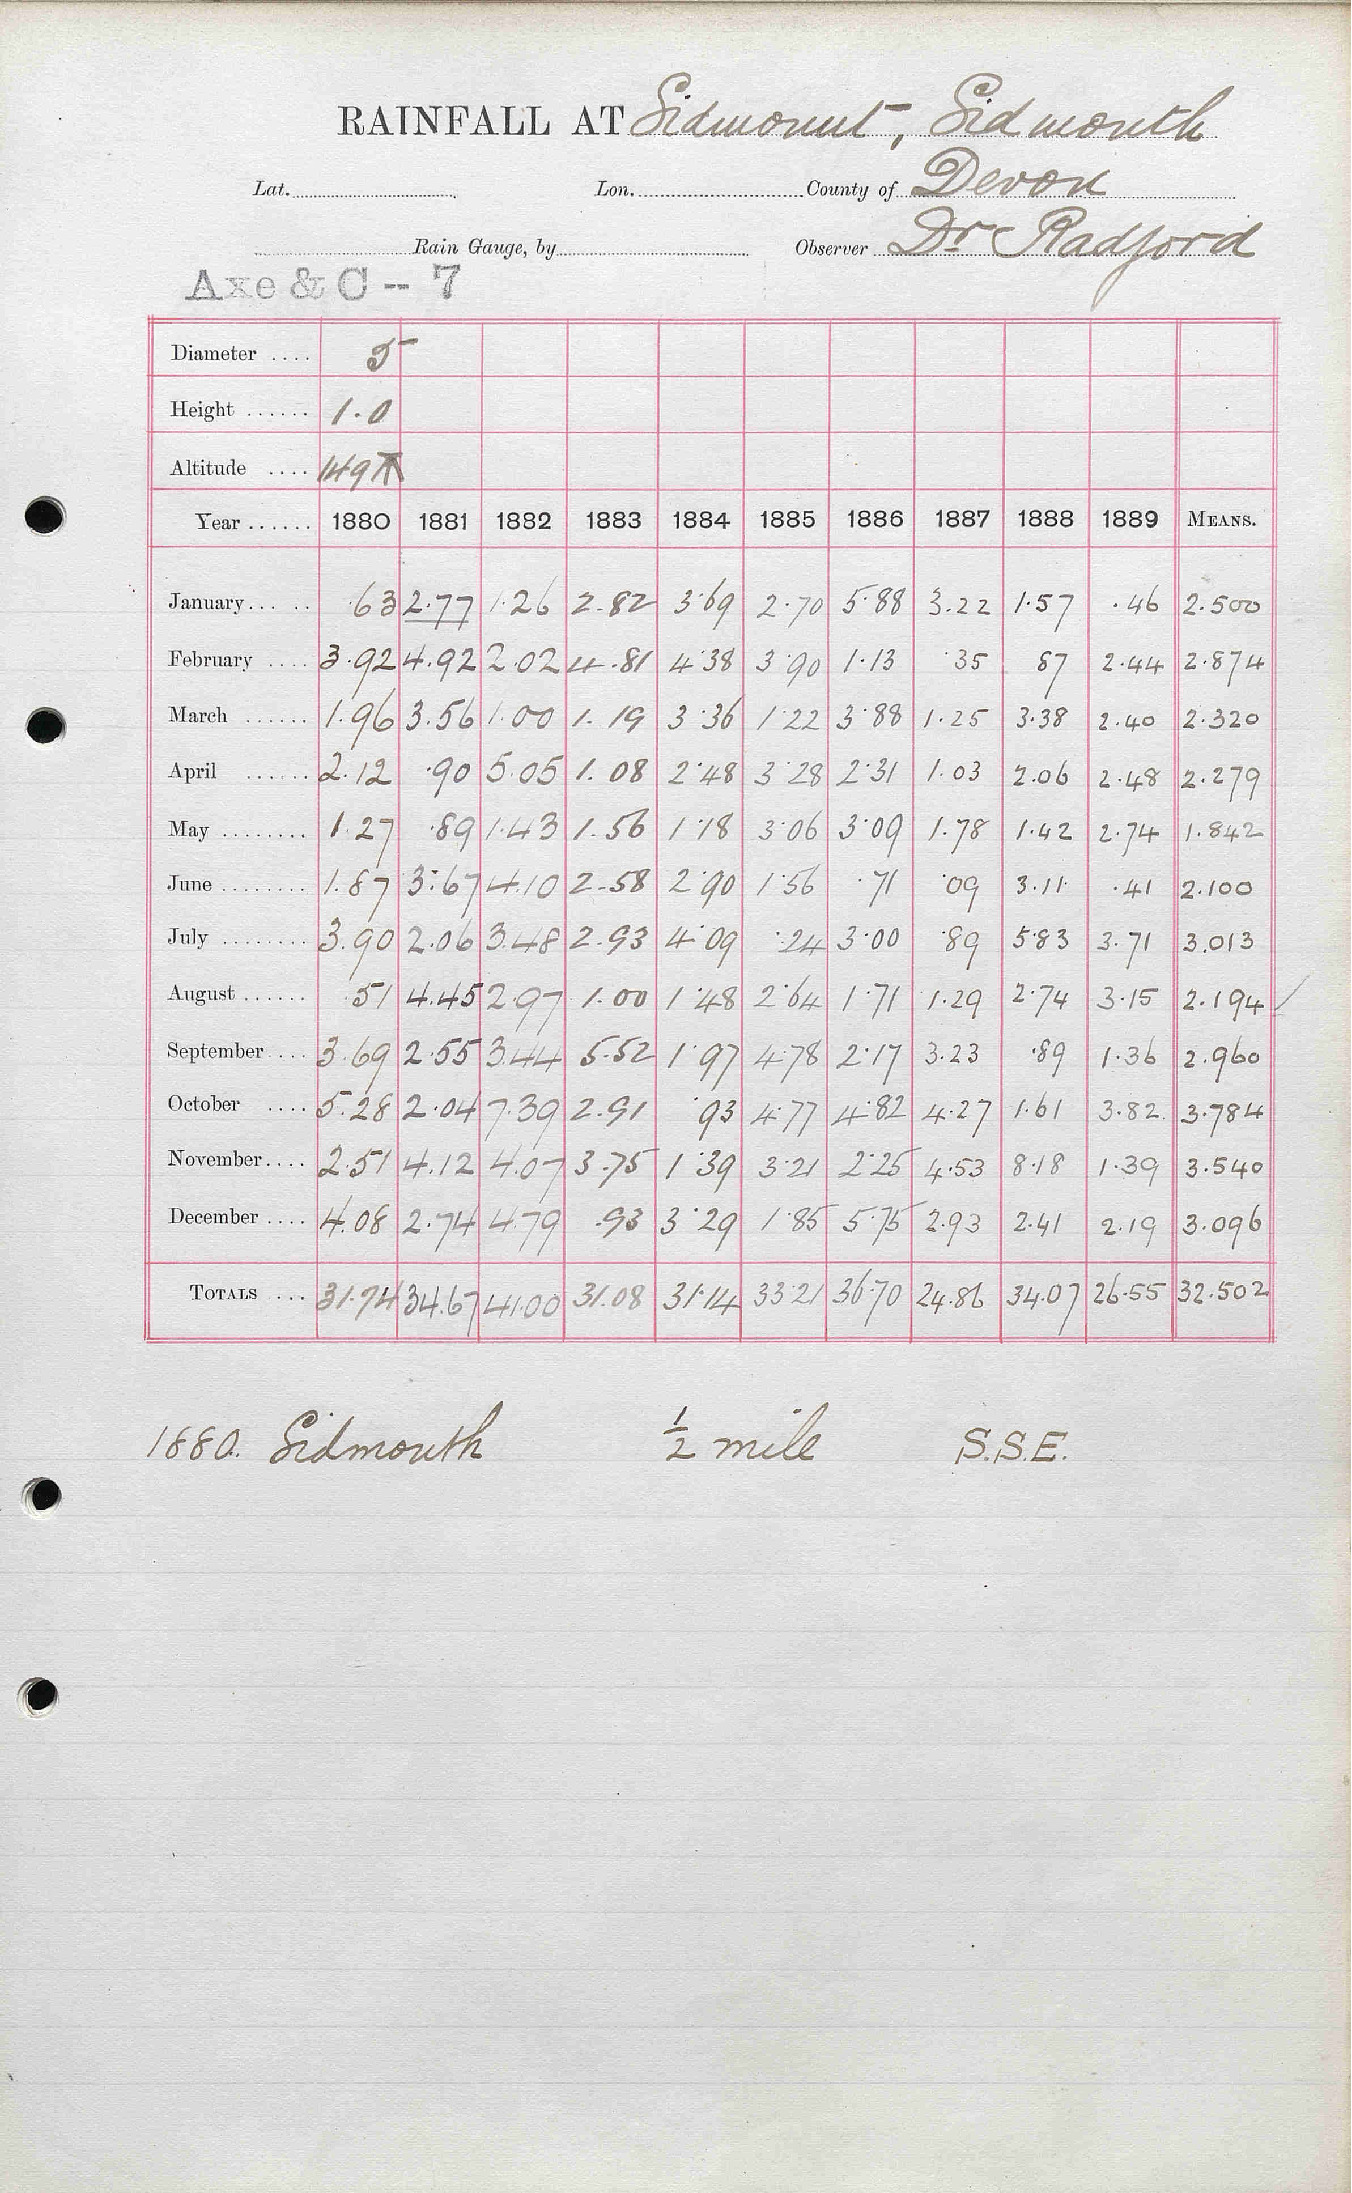 RAINFALL AT Sidmount, Sidmouth
Lat. Lon. County of Devon
Rain Gauge, by Observer Dr Radford
Axe & C - 7
Diameter .... 5
Height ...... 1.0
Altitude ....
Year ...... 1880 1881 1882 1883 1884 1885 1886 1887 1888 1889 MEANS.
January ... .. .63 2.77 1.26 2.82 3.69 2.70 5.88 3.22 1.57 .46 2.500
February .... 3.92 4.92 2.02 4.81 4.38 3.90 1.13 .35 87 2.44 2.874
March ...... 1.96 3.56 1.00 1.19 3.36 1.22 3.88 1.25 3.38 2.40 2.320
April ...... 2.12 .90 5.05 1.08 2.48 3.28 2.31 1.03 2.06 2.48 2.279
May ........ 1.27 .89 1.43 1.56 1.18 3.06 3.09 1.78 1.42 2.74 1.842
June ........ 1.87 3.67 4.10 2.58 2.90 1.56 .71 .09 3.11 .41 2.100
July ........ 3.90 2.06 3.48 2.93 4.09 .24 3.00 .89 5.83 3.71 3.013
August ...... .51 4.45 2.97 1.00 1.48 2.64 1.71 1.29 2.74 3.15 2.194
September .... 3.69 2.55 3.44 5.52 1.97 4.78 2.17 3.23 .89 1.36 2.960
October .... 5.28 2.04 7.39 2.91 .93 4.77 4.82 4.27 1.61 3.82 3.784
November .... 2.51 4.12 4.07 3.75 1.39 3.21 2.25 4.53 8.18 1.39 3.540
December .... 4.08 2.74 4.79 .93 3.29 1.85 5.75 2.93 2.41 2.19 3.096
TOTALS ... 31.74 34.67 41.00 31.08 31.14 33.21 36.70 24.86 34.07 26.55 32.502
1880. Sidmouth ½ mile S.S.E.